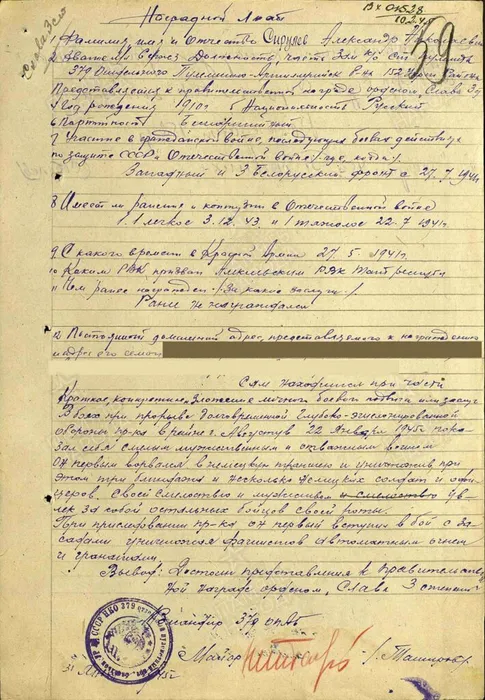 Вх 01528
10.2.45
Слава 3 ст
39
Наградной Лист
1 Фамилия, имя и Отчество Александр Николаевич
2 Звание 3 Должность, часть Зам к-ра от. пульвзвода
379 Отдельного Пулеметно-Артиллерийск. б-на 152 Укреп Района
Представляется к правительственной награде орденом Слава 3 ст
4 Год рождения 1910 г. 5 Национальность Русский
6 Партийность Беспартийный
7 Участие в гражданской войне, последующих боевых действиях
по защите СССР и Отечественной войне /где, когда/.
Западный и 3 Белорусский фронта 27.7.1941 г
8 Имеет ли ранение и контузии в Отечественной войне
1 легкое 3.12.43 и 1 тяжелое 22.7.1941 г.
9 С какого времени в Красной Армии 27.5.1941 г.
10 Каким РВК призван РВК
11 Чем ранее награжден /за какие заслуги/.
Ранее не награждался
12 Постоянный домашний адрес, представляемого к награждению
и адрес его семьи
Сам находится при части
Краткое, конкретное изложение личного боевого подвига или заслуг
В боях при прорыве долговременной глубоко-эшелонированной
обороны пр-ка в районе г. Августув 22 Января 1945 г. пока
зал себя смелым мужественным и отважным воином
Он первым ворвался в немецкую траншею и уничтожив при
этом три блиндажа и несколько немецких солдат и офи
церов. Своей смелостью и мужеством и смелостью ув
лек за собой остальных бойцов своей роты.
При преследовании пр-ка он первый вступил в бой с за
садами уничтожая фашистов автоматным огнем
и гранатами.
Вывод: Достоин представления к Правительствен
ной награде орденом, Слава 3 степени
Командир 379 опаб
Майор
31 Января